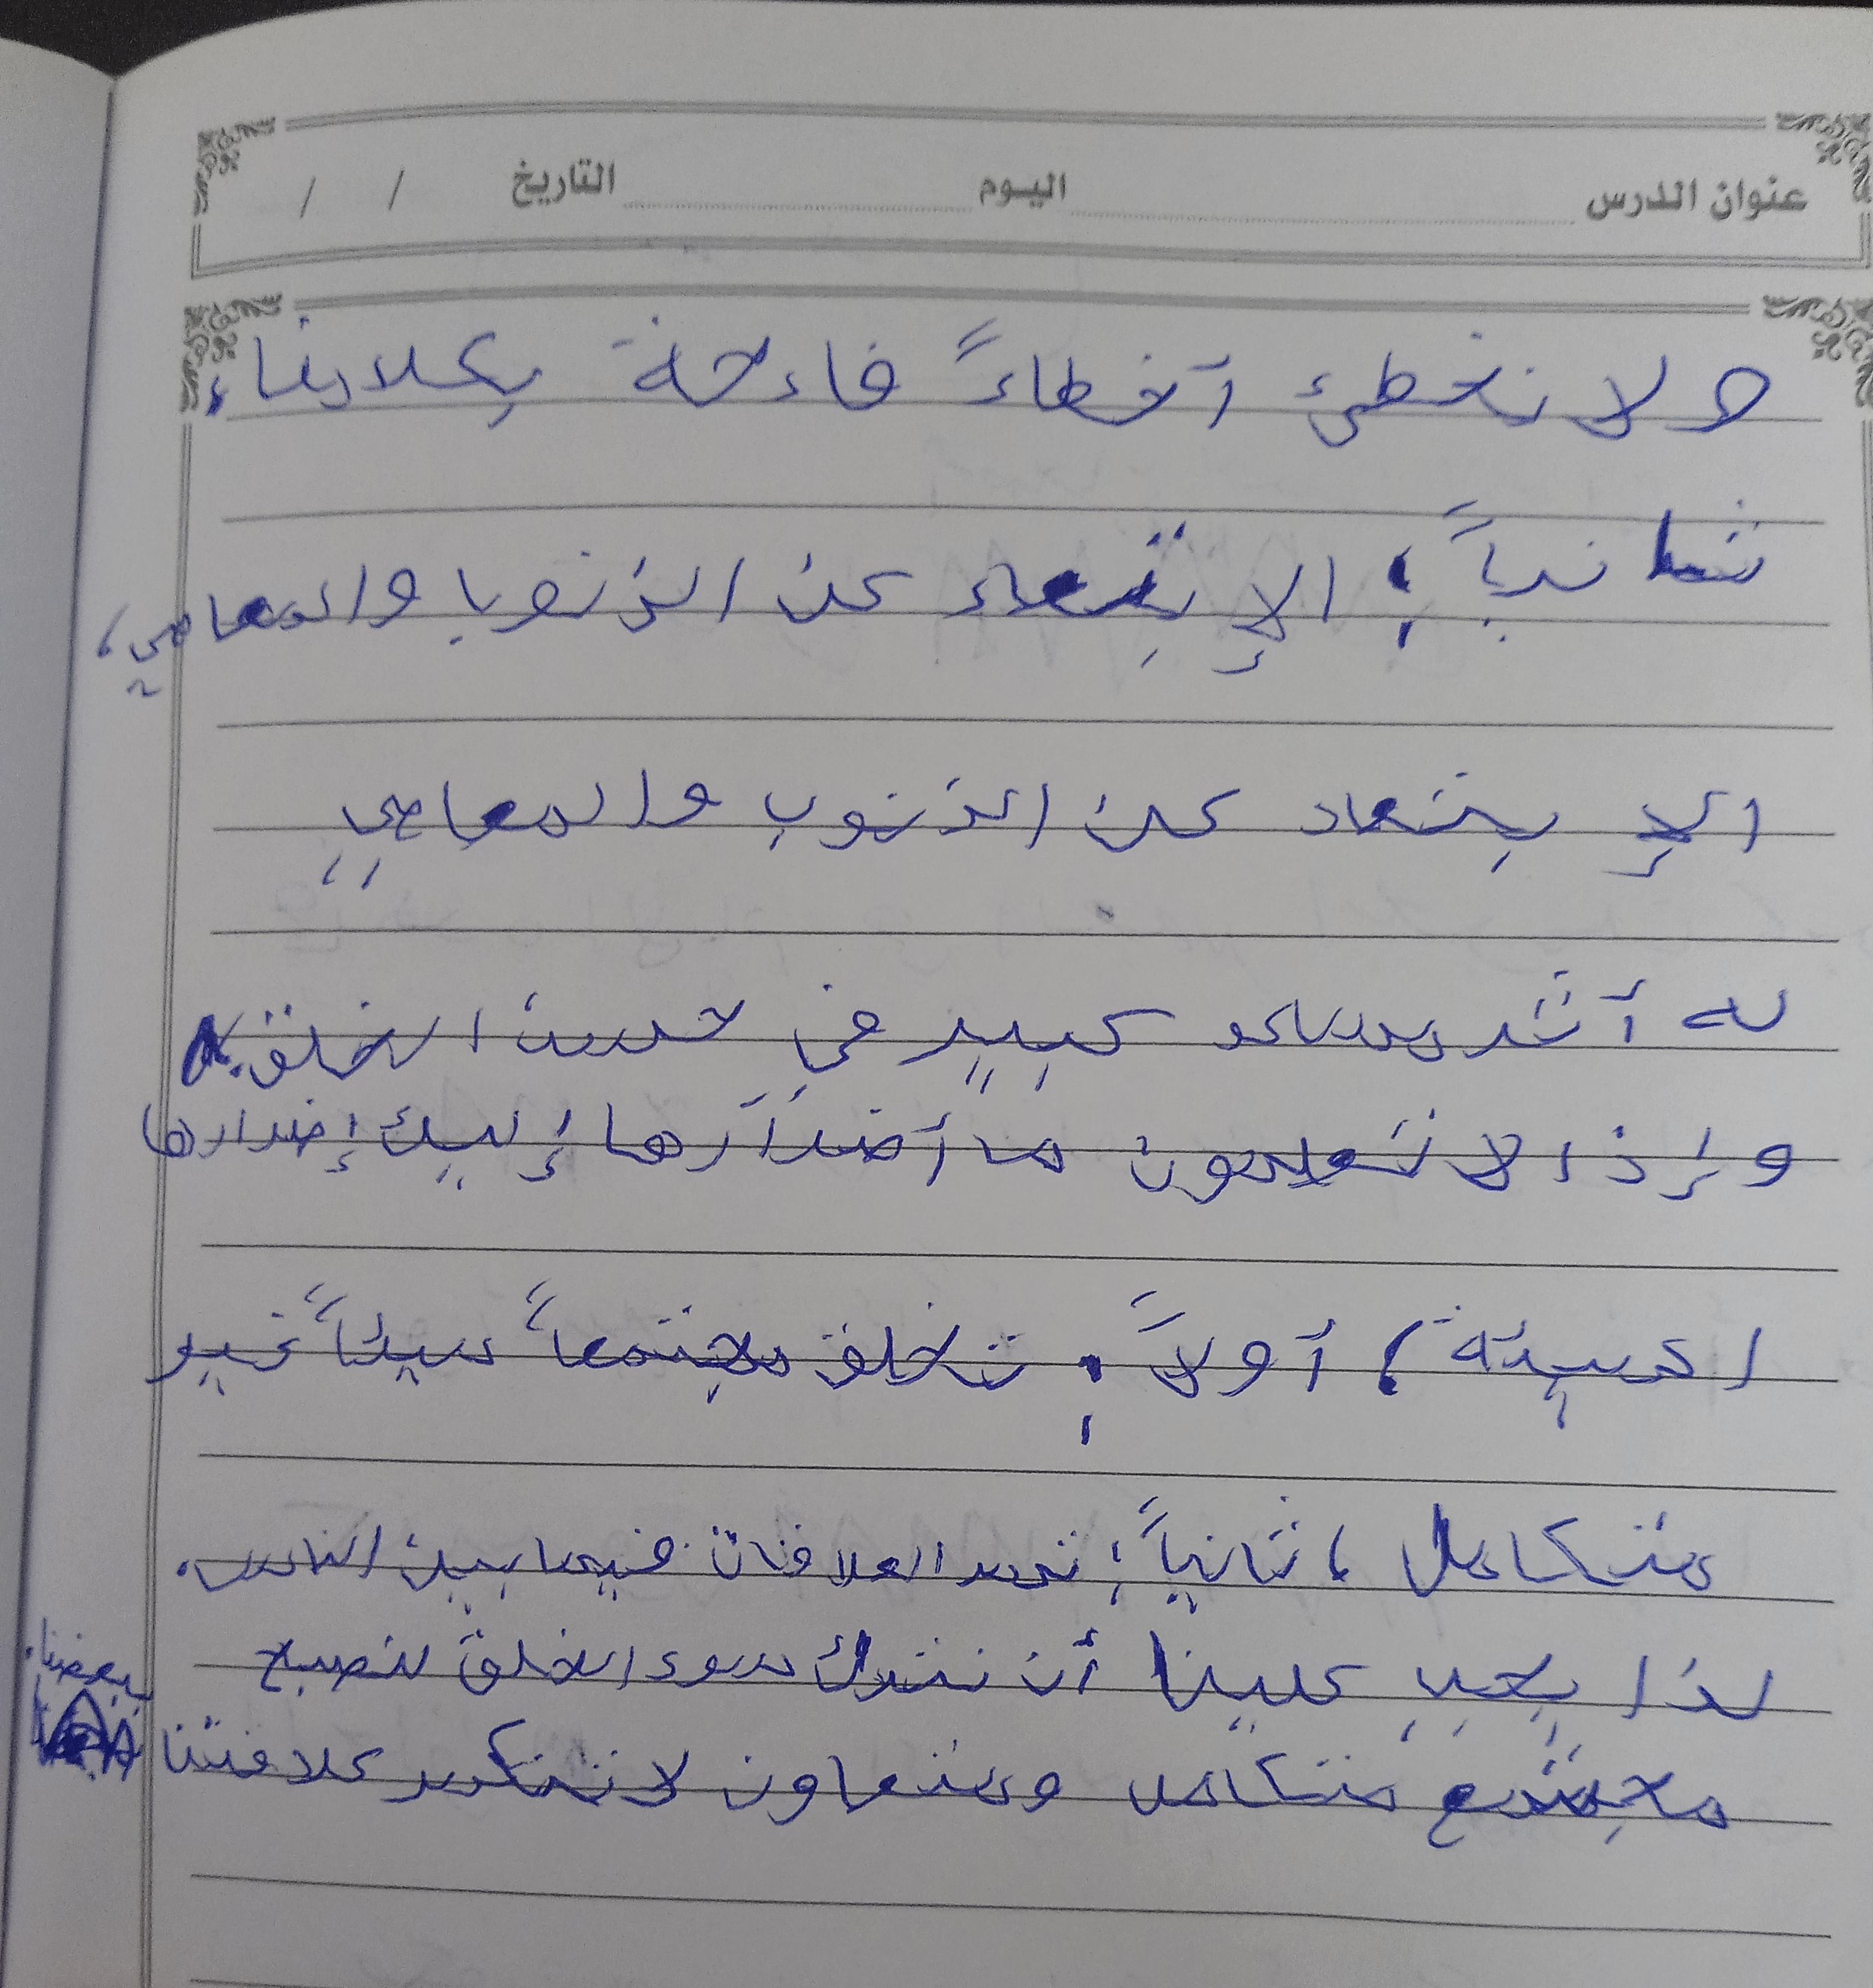 عنوان الدرس اليوم التاريخ / /
ولا نخطئ أخطاءً فادحة بكلامنا،
ثانياً: الإبتعاد عن الذنوب والمعاصي،
الإبتعاد عن الذنوب والمعاصي
له أثر كبير في حسن الخلق.
وإذا لا تعلمون ما أضرارها إليك إضرارها
السيئة، أولاً: تخلق مجتمعاً سيئاً غير
متكامل، ثانياً: تكسر العلاقات فيما بين الناس.
لذا يجب علينا أن نترك سوء الخلق لنصبح
مجتمع متكامل ومتعاون لا تنكسر علاقتنا
ببعضنا.